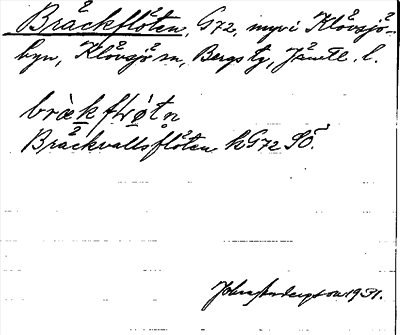 Bräckflöten, G72, myr i Klövsjö-
byn, Klövsjö sn, Bergs tg, Jämtl. l.
bræ̀kfḷø̀tn̥
Bräckvallsflöten kG72 SÖ.
1931.